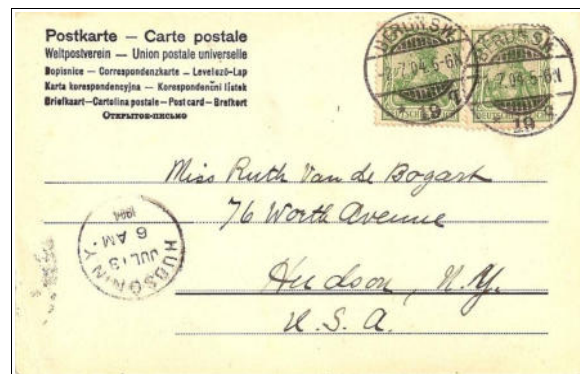 Postkarte — Carte postale
Weltpostverein — Union postale universelle
Dopisnice — Correspondenzkarte — Levelező-Lap
Karta korespondencyjna — Korespondenční lístek
Briefkaart — Cartolina postale — Post card — Brefkort
Открытое письмо
BERLIN S.W.
7.04.5-6N
19
BERLIN S.W.
7.04.5-6N
19
Miss Ruth Van de Bogart
76 Worth Avenue
Hudson, N.Y.
U.S.A.
HUDSON N.Y.
JUL 13
6 AM
1904